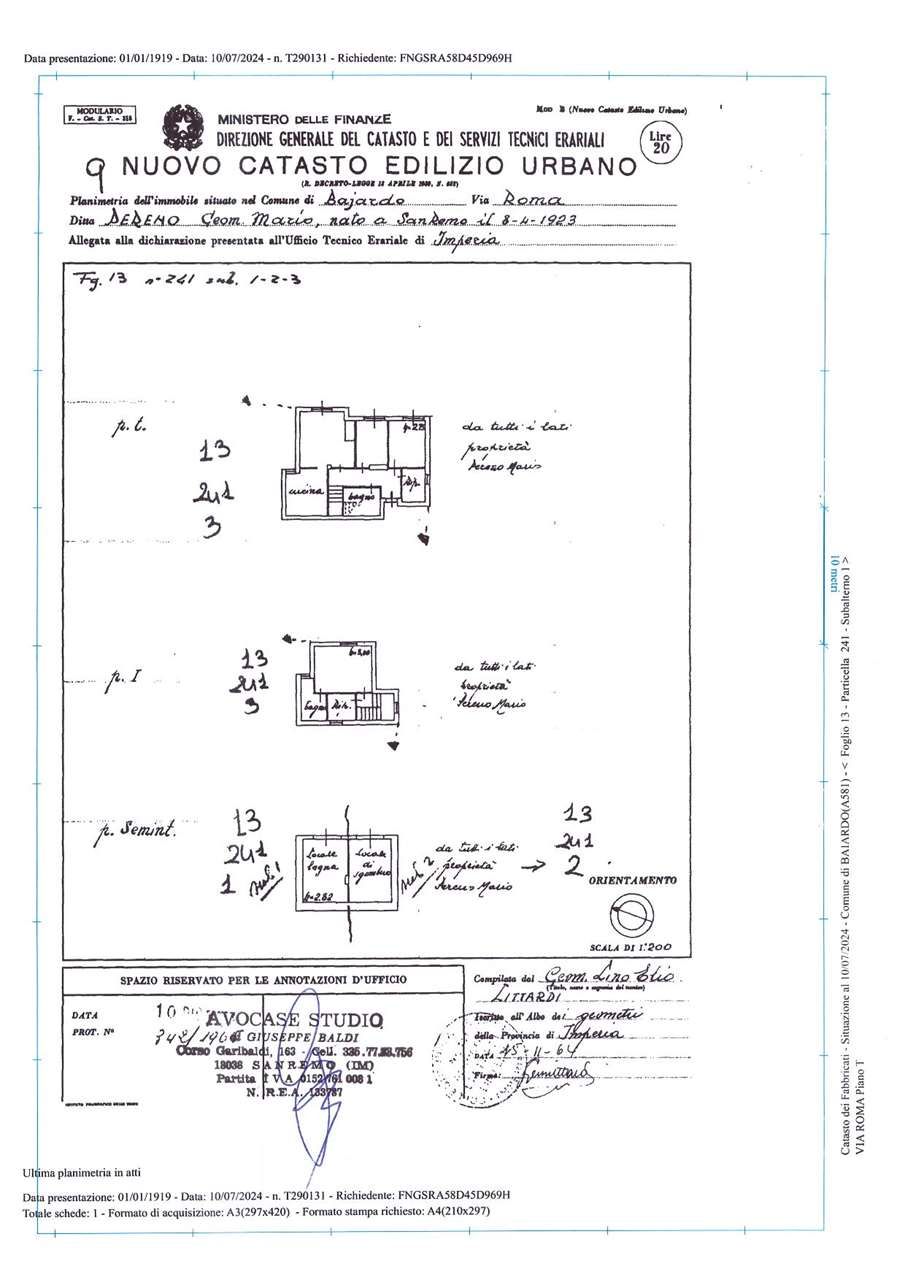 Data presentazione: 01/01/1919 - Data: 10/07/2024 - n. T290131 - Richiedente: FNGSRA58D45D969H
MODULARIO
F. - Cat. S. T. - 315
MOD B (Nuovo Catasto Edilizio Urbano)
MINISTERO DELLE FINANZE
DIREZIONE GENERALE DEL CATASTO E DEI SERVIZI TECNICI ERARIALI
Lire
20
NUOVO CATASTO EDILIZIO URBANO
(R. DECRETO-LEGGE 13 APRILE 1939, N. 652)
Planimetria dell'immobile situato nel Comune di Bajardo Via Roma
Ditta SERENO Geom. Mario, nato a SanRemo il 8-4-1923
Allegata alla dichiarazione presentata all'Ufficio Tecnico Erariale di Imperia
Fg. 13 n° 241 sub. 1-2-3
p. t.
13
241
3
cucina
bagno
Rip.
da tutti i lati
proprietà
Sereno Mario
p. I
13
241
3
h=3,00
bagno
Rip.
da tutti i lati
proprietà
Sereno Mario
p. Semint.
13
241
1
sub 1
Locale
legna
h=2.52
Locale
di
sgombro
sub 2
da tutti i lati
proprietà
Sereno Mario
13
241
2
ORIENTAMENTO
SCALA DI 1:200
SPAZIO RISERVATO PER LE ANNOTAZIONI D'UFFICIO
DATA
PROT. N°
10
342/196
AVOCASE STUDIO
GIUSEPPE BALDI
Corso Garibaldi, 163 - Cell. 335.77.53.756
18038 SANREMO (IM)
Partita IVA 0152761 008 1
N. R.E.A. 133787
Compilata dal Geom. Lino Elio
(Titolo, nome e cognome del tecnico)
LITTARDI
Iscritto all'Albo dei geometri
della Provincia di Imperia
DATA 15-11-64
Firma:
ISTITUTO POLIGRAFICO DELLO STATO
10 metri
Catasto dei Fabbricati - Situazione al 10/07/2024 - Comune di BAIARDO(A581) - < Foglio 13 - Particella 241 - Subalterno 1 >
VIA ROMA Piano T
Ultima planimetria in atti
Data presentazione: 01/01/1919 - Data: 10/07/2024 - n. T290131 - Richiedente: FNGSRA58D45D969H
Totale schede: 1 - Formato di acquisizione: A3(297x420) - Formato stampa richiesto: A4(210x297)